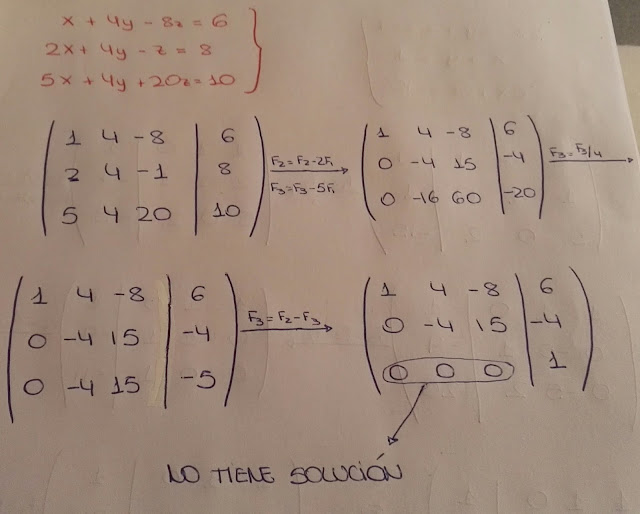 x + 4y - 8z = 6
2x + 4y - z = 8
5x + 4y + 20z = 10
1 4 -8 | 6
2 4 -1 | 8
5 4 20 | 10
F2 = F2 - 2F1
F3 = F3 - 5F1
1 4 -8 | 6
0 -4 15 | -4
0 -16 60 | -20
F3 = F3/4
1 4 -8 | 6
0 -4 15 | -4
0 -4 15 | -5
F3 = F2 - F3
1 4 -8 | 6
0 -4 15 | -4
0 0 0 | 1
NO TIENE SOLUCIÓN